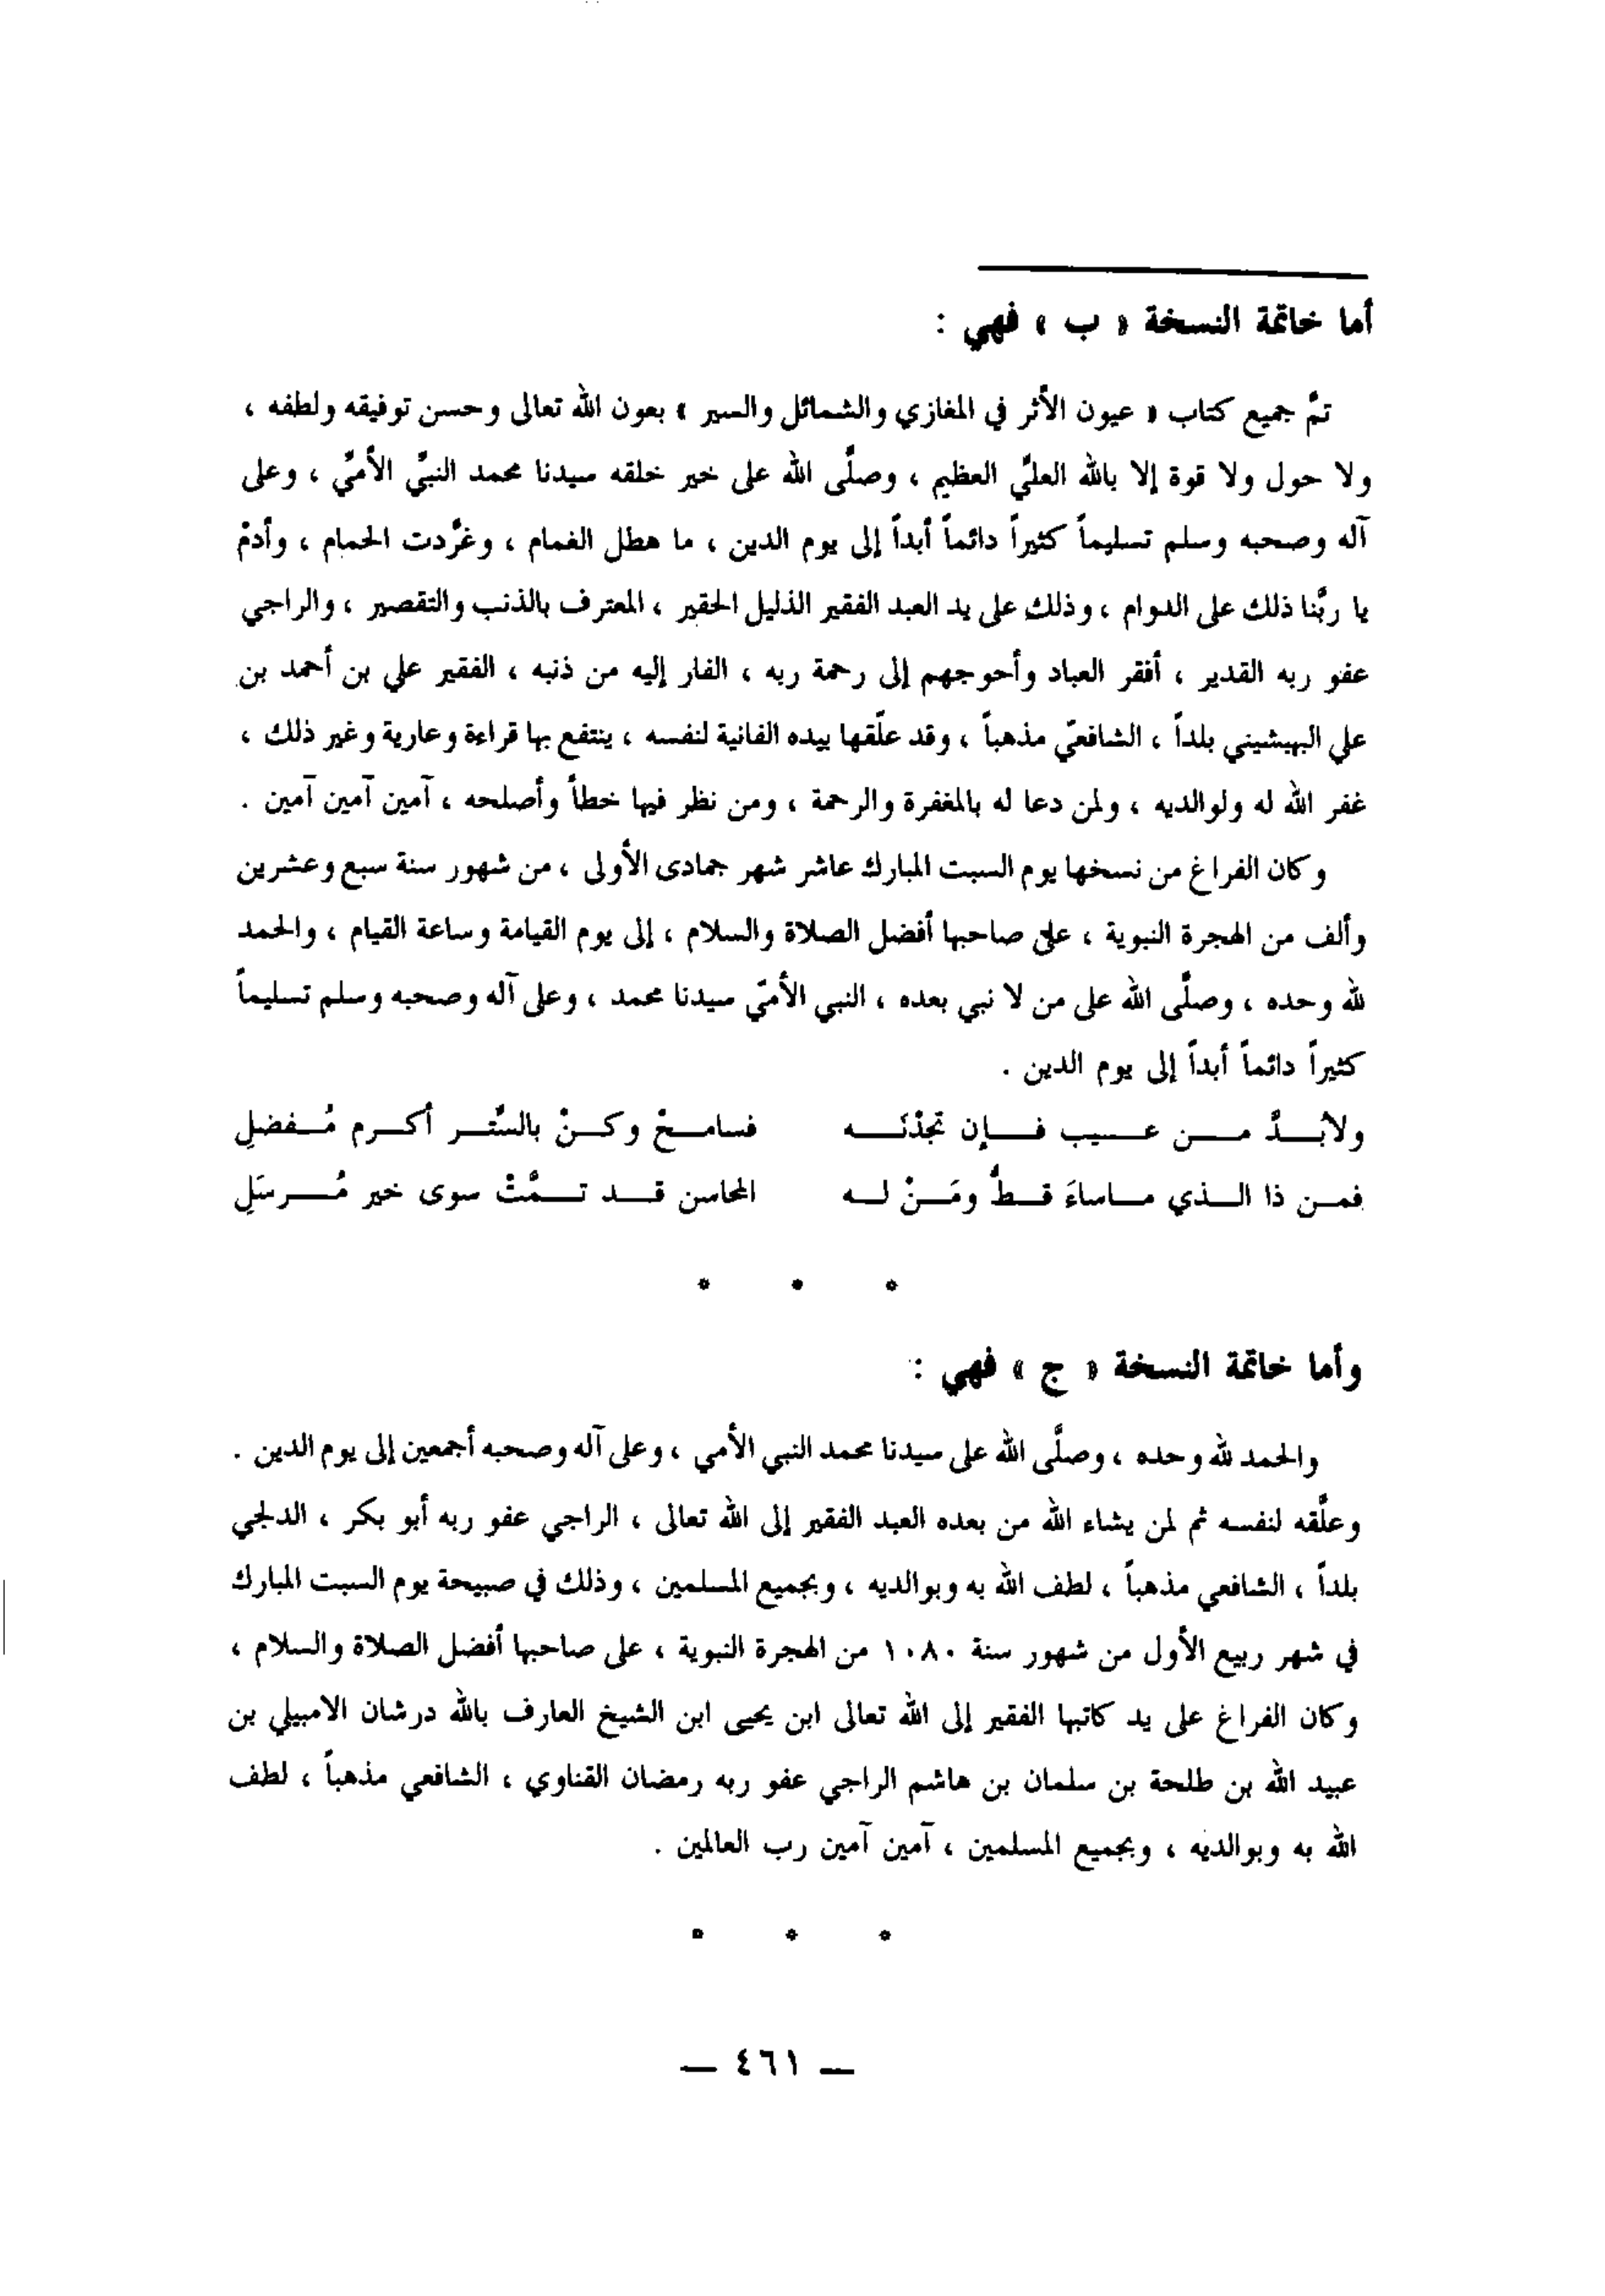 أما خاتمة النسخة « ب » فهي :
تمَّ جميع كتاب « عيون الأثر في المغازي والشمائل والسير » بعون الله تعالى وحسن توفيقه ولطفه ،
ولا حول ولا قوة إلا بالله العليِّ العظيم ، وصلَّى الله على خير خلقه سيدنا محمد النبيِّ الأميِّ ، وعلى
آله وصحبه وسلم تسليماً كثيراً دائماً أبداً إلى يوم الدين ، ما هطل الغمام ، وغرَّدت الحمام ، وأدمْ
يا ربَّنا ذلك على الدوام ، وذلك على يد العبد الفقير الذليل الحقير ، المعترف بالذنب والتقصير ، والراجي
عفو ربه القدير ، أفقر العباد وأحوجهم إلى رحمة ربه ، الفار إليه من ذنبه ، الفقير علي بن أحمد بن
علي البهيشيني بلداً ، الشافعيّ مذهباً ، وقد علّقها بيده الفانية لنفسه ، ينتفع بها قراءة وعارية وغير ذلك ،
غفر الله له ولوالديه ، ولمن دعا له بالمغفرة والرحمة ، ومن نظر فيها خطأ وأصلحه ، آمين آمين آمين .
وكان الفراغ من نسخها يوم السبت المبارك عاشر شهر جمادى الأولى ، من شهور سنة سبع وعشرين
وألف من الهجرة النبوية ، على صاحبها أفضل الصلاة والسلام ، إلى يوم القيامة وساعة القيام ، والحمد
لله وحده ، وصلَّى الله على من لا نبي بعده ، النبي الأميّ سيدنا محمد ، وعلى آله وصحبه وسلم تسليماً
كثيراً دائماً أبداً إلى يوم الدين .
ولابُدَّ من عيب فإن تجدْنَه فسامحْ وكنْ بالسِّتر أكرم مُفضلِ
فمن ذا الذي ماساءَ قطُّ ومَنْ له المحاسن قد تمَّتْ سوى خير مُرسَلِ
* * *
وأما خاتمة النسخة « ج » فهي :
والحمد لله وحده ، وصلَّى الله على سيدنا محمد النبي الأمي ، وعلى آله وصحبه أجمعين إلى يوم الدين .
وعلَّقه لنفسه ثم لمن يشاء الله من بعده العبد الفقير إلى الله تعالى ، الراجي عفو ربه أبو بكر ، الدلجي
بلداً ، الشافعي مذهباً ، لطف الله به وبوالديه ، وبجميع المسلمين ، وذلك في صبيحة يوم السبت المبارك
في شهر ربيع الأول من شهور سنة ١٠٨٠ من الهجرة النبوية ، على صاحبها أفضل الصلاة والسلام ،
وكان الفراغ على يد كاتبها الفقير إلى الله تعالى ابن يحيى ابن الشيخ العارف بالله درشان الامبيلي بن
عبيد الله بن طلحة بن سلمان بن هاشم الراجي عفو ربه رمضان القناوي ، الشافعي مذهباً ، لطف
الله به وبوالديه ، وبجميع المسلمين ، آمين آمين رب العالمين .
* * *
— ٤٦١ —